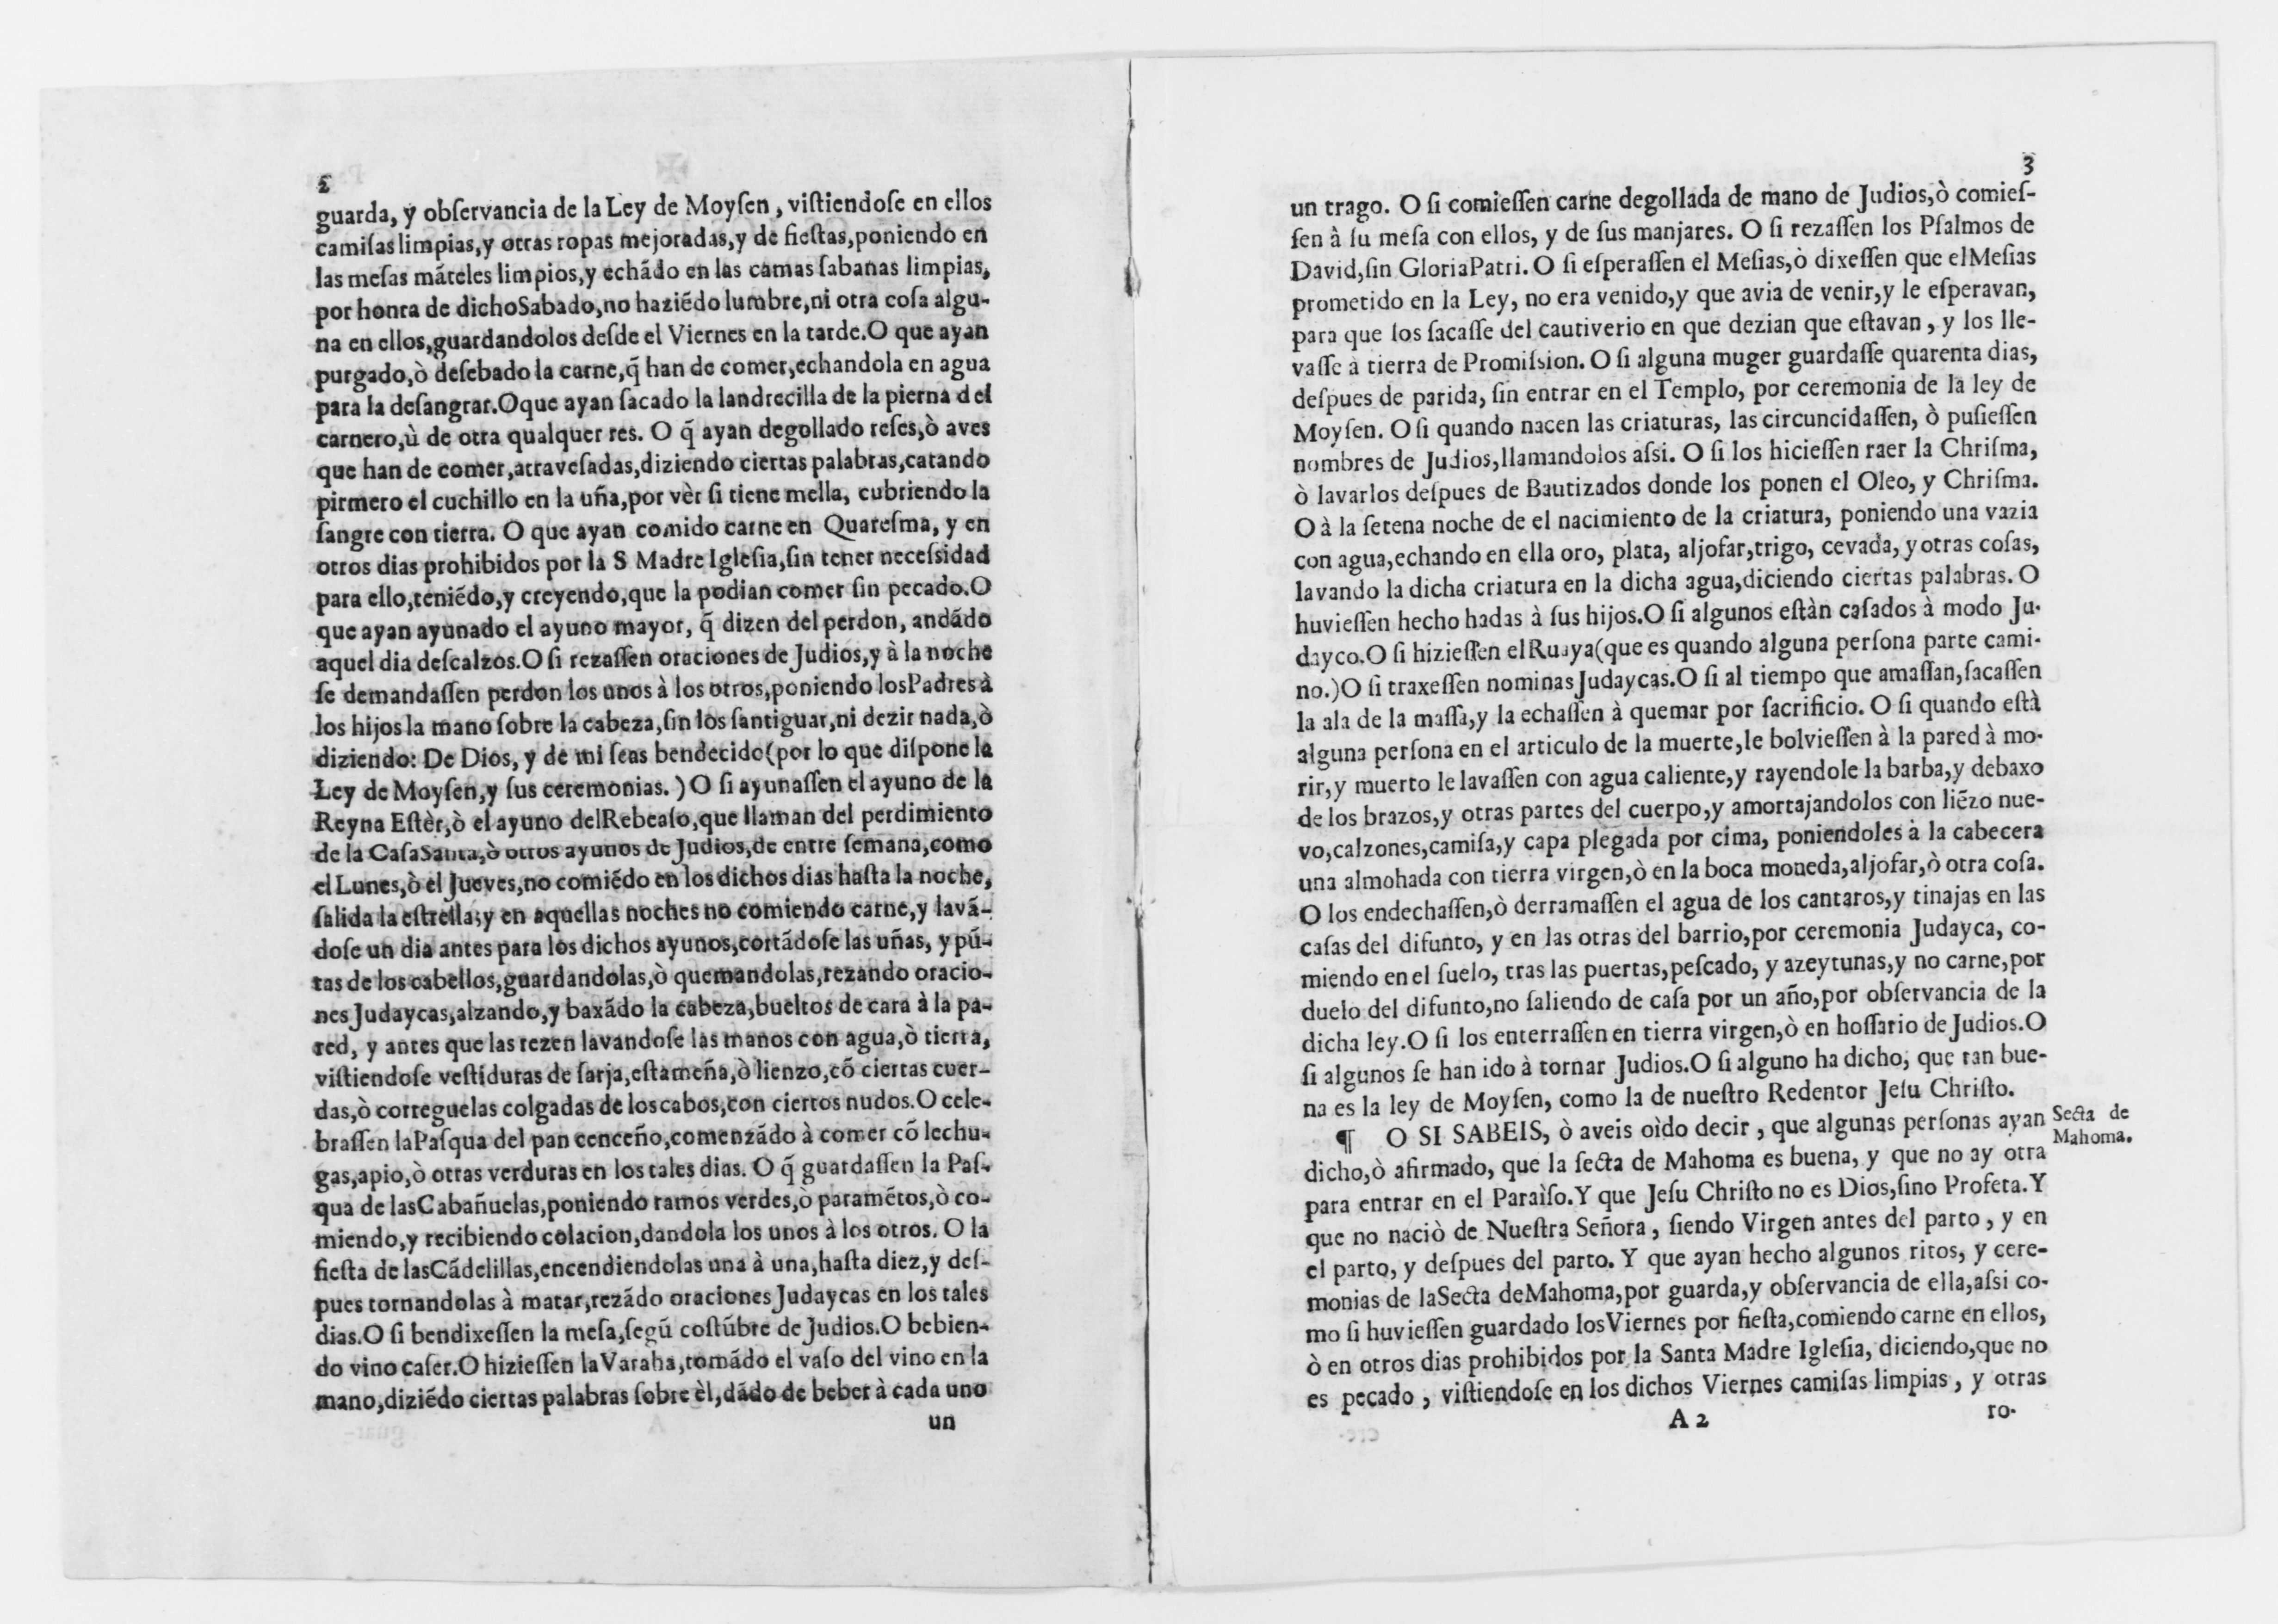 2
guarda, y obſervancia de la Ley de Moyſen, viſtiendoſe en ellos
camiſas limpias,y otras ropas mejoradas,y de fieſtas,poniendo en
las meſas mãteles limpios,y echãdo en las camas ſabanas limpias,
por honra de dichoSabado,no haziẽdo lumbre,ni otra coſa algu-
na en ellos,guardandolos deſde el Viernes en la tarde.O que ayan
purgado,ò deſebado la carne,q̃ han de comer,echandola en agua
para la deſangrar.Oque ayan ſacado la landrecilla de la pierna del
carnero,ù de otra qualquer res. O q̃ ayan degollado reſes,ò aves
que han de comer,atraveſadas,diziendo ciertas palabras,catando
pirmero el cuchillo en la uña,por vèr ſi tiene mella, cubriendo la
ſangre con tierra. O que ayan comido carne en Quareſma, y en
otros dias prohibidos por la S Madre Igleſia,ſin tener neceſsidad
para ello,teniẽdo,y creyendo,que la podian comer ſin pecado.O
que ayan ayunado el ayuno mayor, q̃ dizen del perdon, andãdo
aquel dia deſcalzos.O ſi rezaſſen oraciones de Judios,y à la noche
ſe demandaſſen perdon los unos à los otros,poniendo losPadres à
los hijos la mano ſobre la cabeza,ſin los ſantiguar,ni dezir nada,ò
diziendo: De Dios, y de mi ſeas bendecido(por lo que diſpone la
Ley de Moyſen,y ſus ceremonias.) O ſi ayunaſſen el ayuno de la
Reyna Eſtèr,ò el ayuno delRebeaſo,que llaman del perdimiento
de la CaſaSanta,ò otros ayunos de Judios,de entre ſemana,como
el Lunes,ò el Jueves,no comiẽdo en los dichos dias haſta la noche,
ſalida la eſtrella;y en aquellas noches no comiendo carne,y lavã-
doſe un dia antes para los dichos ayunos,cortãdoſe las uñas, y pũ-
tas de los cabellos,guardandolas,ò quemandolas,rezando oracio-
nes Judaycas,alzando,y baxãdo la cabeza,bueltos de cara à la pa-
red, y antes que las rezen lavandoſe las manos con agua,ò tierra,
viſtiendoſe veſtiduras de ſarja,eſtameña,ò lienzo,cõ ciertas cuer-
das,ò correguelas colgadas de los cabos,con ciertos nudos.O cele-
braſſen laPaſqua del pan cenceño,comenzãdo à comer cõ lechu-
gas,apio,ò otras verduras en los tales dias. O q̃ guardaſſen la Paſ-
qua de lasCabañuelas,poniendo ramos verdes,ò paramẽtos,ò co-
miendo,y recibiendo colacion,dandola los unos à los otros. O la
fieſta de lasCãdelillas,encendiendolas una à una,haſta diez,y deſ-
pues tornandolas à matar,rezãdo oraciones Judaycas en los tales
dias.O ſi bendixeſſen la meſa,ſegũ coſtũbre de Judios.O bebien-
do vino caſer.O hizieſſen laVaraha,tomãdo el vaſo del vino en la
mano,diziẽdo ciertas palabras ſobre èl,dãdo de beber à cada uno
un
3
un trago. O ſi comieſſen carne degollada de mano de Judios,ò comieſ-
ſen à ſu meſa con ellos, y de ſus manjares. O ſi rezaſſen los Pſalmos de
David,ſin GloriaPatri. O ſi eſperaſſen el Meſias,ò dixeſſen que elMeſias
prometido en la Ley, no era venido,y que avia de venir,y le eſperavan,
para que los ſacaſſe del cautiverio en que dezian que eſtavan, y los lle-
vaſſe à tierra de Promiſsion. O ſi alguna muger guardaſſe quarenta dias,
deſpues de parida, ſin entrar en el Templo, por ceremonia de la ley de
Moyſen. O ſi quando nacen las criaturas, las circuncidaſſen, ò puſieſſen
nombres de Judios,llamandolos aſsi. O ſi los hicieſſen raer la Chriſma,
ò lavarlos deſpues de Bautizados donde los ponen el Oleo, y Chriſma.
O à la ſetena noche de el nacimiento de la criatura, poniendo una vazia
con agua,echando en ella oro, plata, aljofar,trigo, cevada, y otras coſas,
lavando la dicha criatura en la dicha agua,diciendo ciertas palabras. O
huvieſſen hecho hadas à ſus hijos.O ſi algunos eſtàn caſados à modo Ju-
dayco.O ſi hizieſſen elRuaya(que es quando alguna perſona parte cami-
no.)O ſi traxeſſen nominas Judaycas.O ſi al tiempo que amaſſan,ſacaſſen
la ala de la maſſa,y la echaſſen à quemar por ſacrificio. O ſi quando eſtà
alguna perſona en el articulo de la muerte,le bolvieſſen à la pared à mo-
rir,y muerto le lavaſſen con agua caliente,y rayendole la barba,y debaxo
de los brazos,y otras partes del cuerpo,y amortajandolos con liẽzo nue-
vo,calzones,camiſa,y capa plegada por cima, poniendoles à la cabecera
una almohada con tierra virgen,ò en la boca moneda,aljofar,ò otra coſa.
O los endechaſſen,ò derramaſſen el agua de los cantaros,y tinajas en las
caſas del difunto, y en las otras del barrio,por ceremonia Judayca, co-
miendo en el ſuelo, tras las puertas,peſcado, y azeytunas,y no carne,por
duelo del difunto,no ſaliendo de caſa por un año,por obſervancia de la
dicha ley.O ſi los enterraſſen en tierra virgen,ò en hoſſario de Judios.O
ſi algunos ſe han ido à tornar Judios.O ſi alguno ha dicho, que tan bue-
na es la ley de Moyſen, como la de nueſtro Redentor Jeſu Chriſto.
¶ O SI SABEIS, ò aveis oìdo decir, que algunas perſonas ayan
Secta de
Mahoma.
dicho,ò afirmado, que la ſecta de Mahoma es buena, y que no ay otra
para entrar en el Paraìſo.Y que Jeſu Chriſto no es Dios,ſino Profeta.Y
que no naciò de Nueſtra Señora, ſiendo Virgen antes del parto, y en
el parto, y deſpues del parto. Y que ayan hecho algunos ritos, y cere-
monias de laSecta deMahoma,por guarda,y obſervancia de ella,aſsi co-
mo ſi huvieſſen guardado losViernes por fieſta,comiendo carne en ellos,
ò en otros dias prohibidos por la Santa Madre Igleſia, diciendo,que no
es pecado, viſtiendoſe en los dichos Viernes camiſas limpias, y otras
A 2
ro-